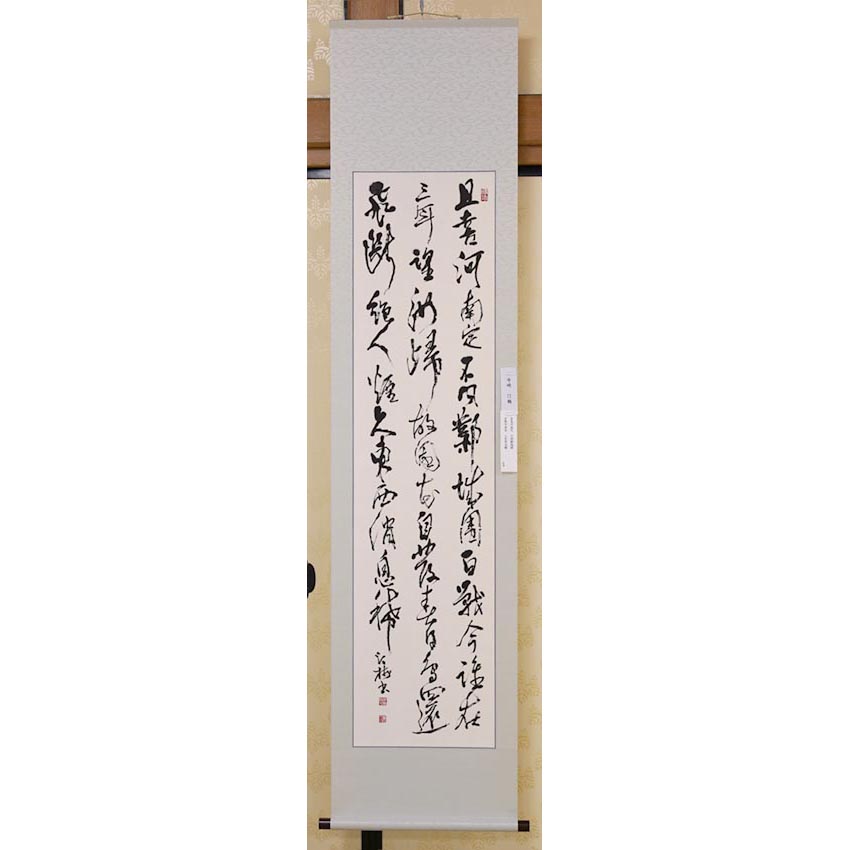 且喜河南定不問鄴城圍百戰今誰在
三年望汝歸故園花自發春日鳥還
飛斷絕人煙久東西消息稀